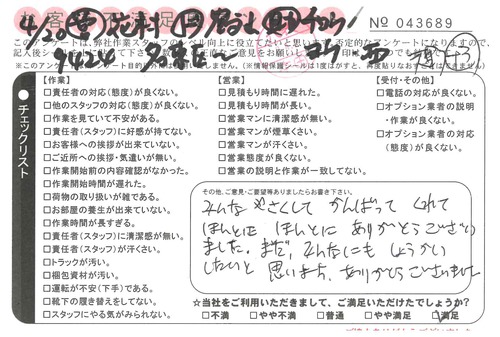 4/20
№ 043689
9424
このアンケートは、弊社作業スタッフのレベル向上に役立てたいと思います
※このアンケート
(※情報保護シールは1度はがすと、再度貼りなおすことはできません)
チェックリスト
【作業】
□責任者の対応(態度)が良くない。
□他のスタッフの対応(態度)が良くない。
□作業を見ていて不安がある。
□責任者(スタッフ)に好感が持てない。
□お客様への挨拶が出来ていない。
□ご近所への挨拶・気遣いが無い。
□作業開始前の内容確認がなかった。
□作業開始時間が遅れた。
□荷物の取り扱いが雑である。
□お部屋の養生が出来ていない。
□作業時間が長すぎる。
□責任者(スタッフ)に清潔感が無い。
□責任者(スタッフ)が汗くさい。
□トラックが汚い。
□梱包資材が汚い。
□運転が不安(下手)である。
□靴下の履き替えをしてない。
□スタッフにやる気がみられない。
【営業】
□見積もり時間に遅れた。
□見積もり時間が長い。
□営業マンに清潔感が無い。
□営業マンが煙草くさい。
□営業マンが汗くさい。
□営業態度が良くない。
□営業の説明と作業が一致してない。
【受付・その他】
□電話の対応が良くない。
□オプション業者の説明
・作業が良くない。
□オプション業者の対応
(態度)が良くない。
その他、ご意見・ご要望等ありましたらお書き下さい。
みんな やさしくて がんばって くれて
ほんとに ほんとに ありがとうござい
ました。まだ、みんなにも しょうかい
したいと 思います。ありがとうございました
☆当社をご利用いただきまして、ご満足いただけたでしょうか?
□不満 □やや不満 □普通 □やや満足 ☑満足